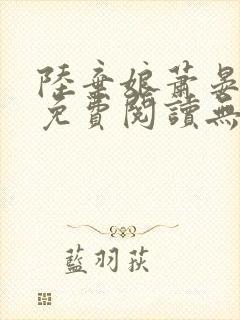 陸棄娘蕭晏
免費閱讀無
藍羽荻